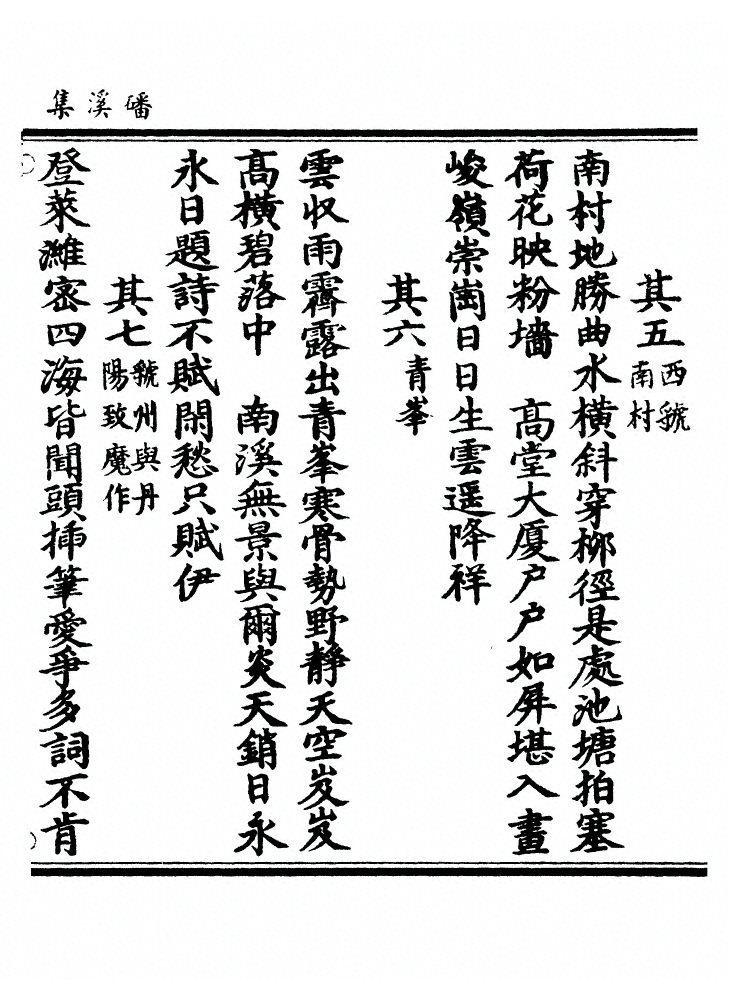 磻溪集
其五西虢南村
南村地勝曲水橫斜穿柳徑是處池塘拍塞
荷花映粉墻　高堂大廈户户如屏堪入畫
峻嶺崇崗日日生雲遥降祥
其六青峯
雲収雨霽露出青峯寒骨勢野靜天空岌岌
高橫碧落中　南溪無景與爾炎天銷日永
永日題詩不賦閑愁只賦伊
其七虢州與丹陽致魔作
登萊濰宻四海皆聞頭揷筆愛爭多詞不肯